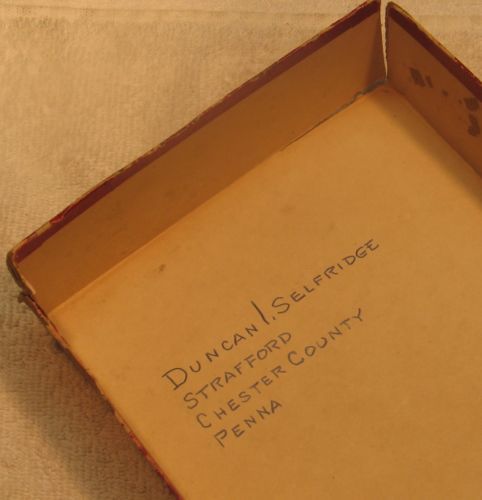 DUNCAN I. SELFRIDGE
STRAFFORD
CHESTER COUNTY
PENNA